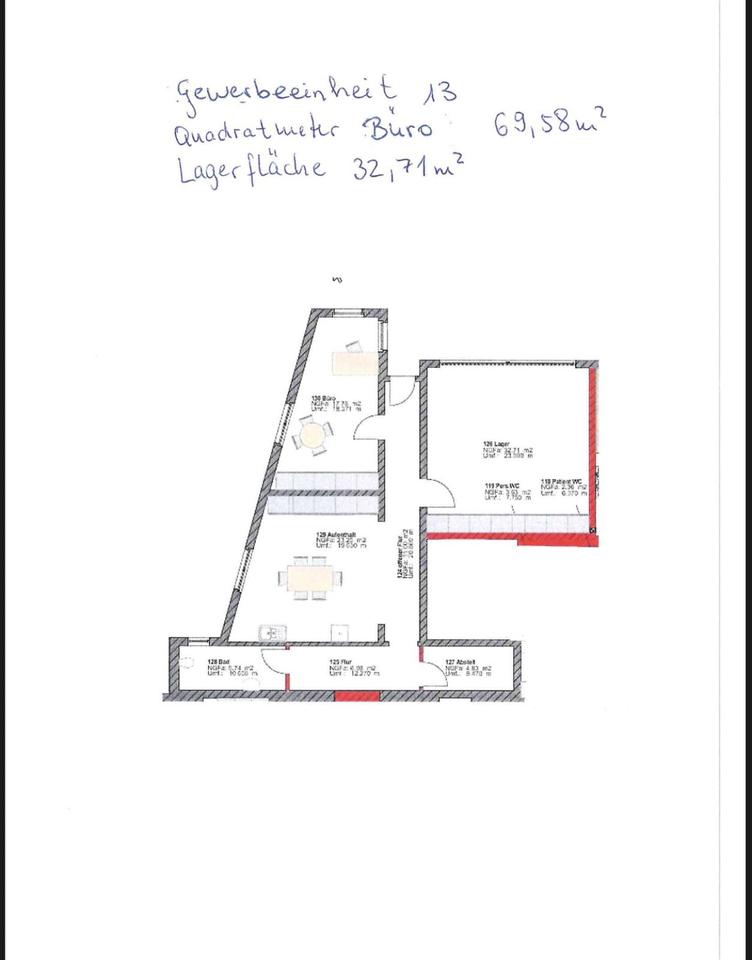 Gewerbeeinheit 13
Quadratmeter Büro 69,58 m²
Lagerfläche 32,71 m²
130 Büro
NGFa: 17.76 m2
Umf.: 18.371 m
126 Lager
NGFa: 32.71 m2
119 Pers.WC
NGFa: 3.63 m2
Umf.: 7.750 m
118 Patient WC
NGFa: 2.36 m2
Umf.: 6.370 m
129 Aufenthalt
NGFa: 23.25 m2
Umf.: 19.630 m
124 offener Flur
128 Bad
NGFa: 5.74 m2
125 Flur
NGFa: 6.98 m2
Umf.: 12.270 m
127 Abstell
NGFa: 4.83 m2
Umf.: 9.470 m